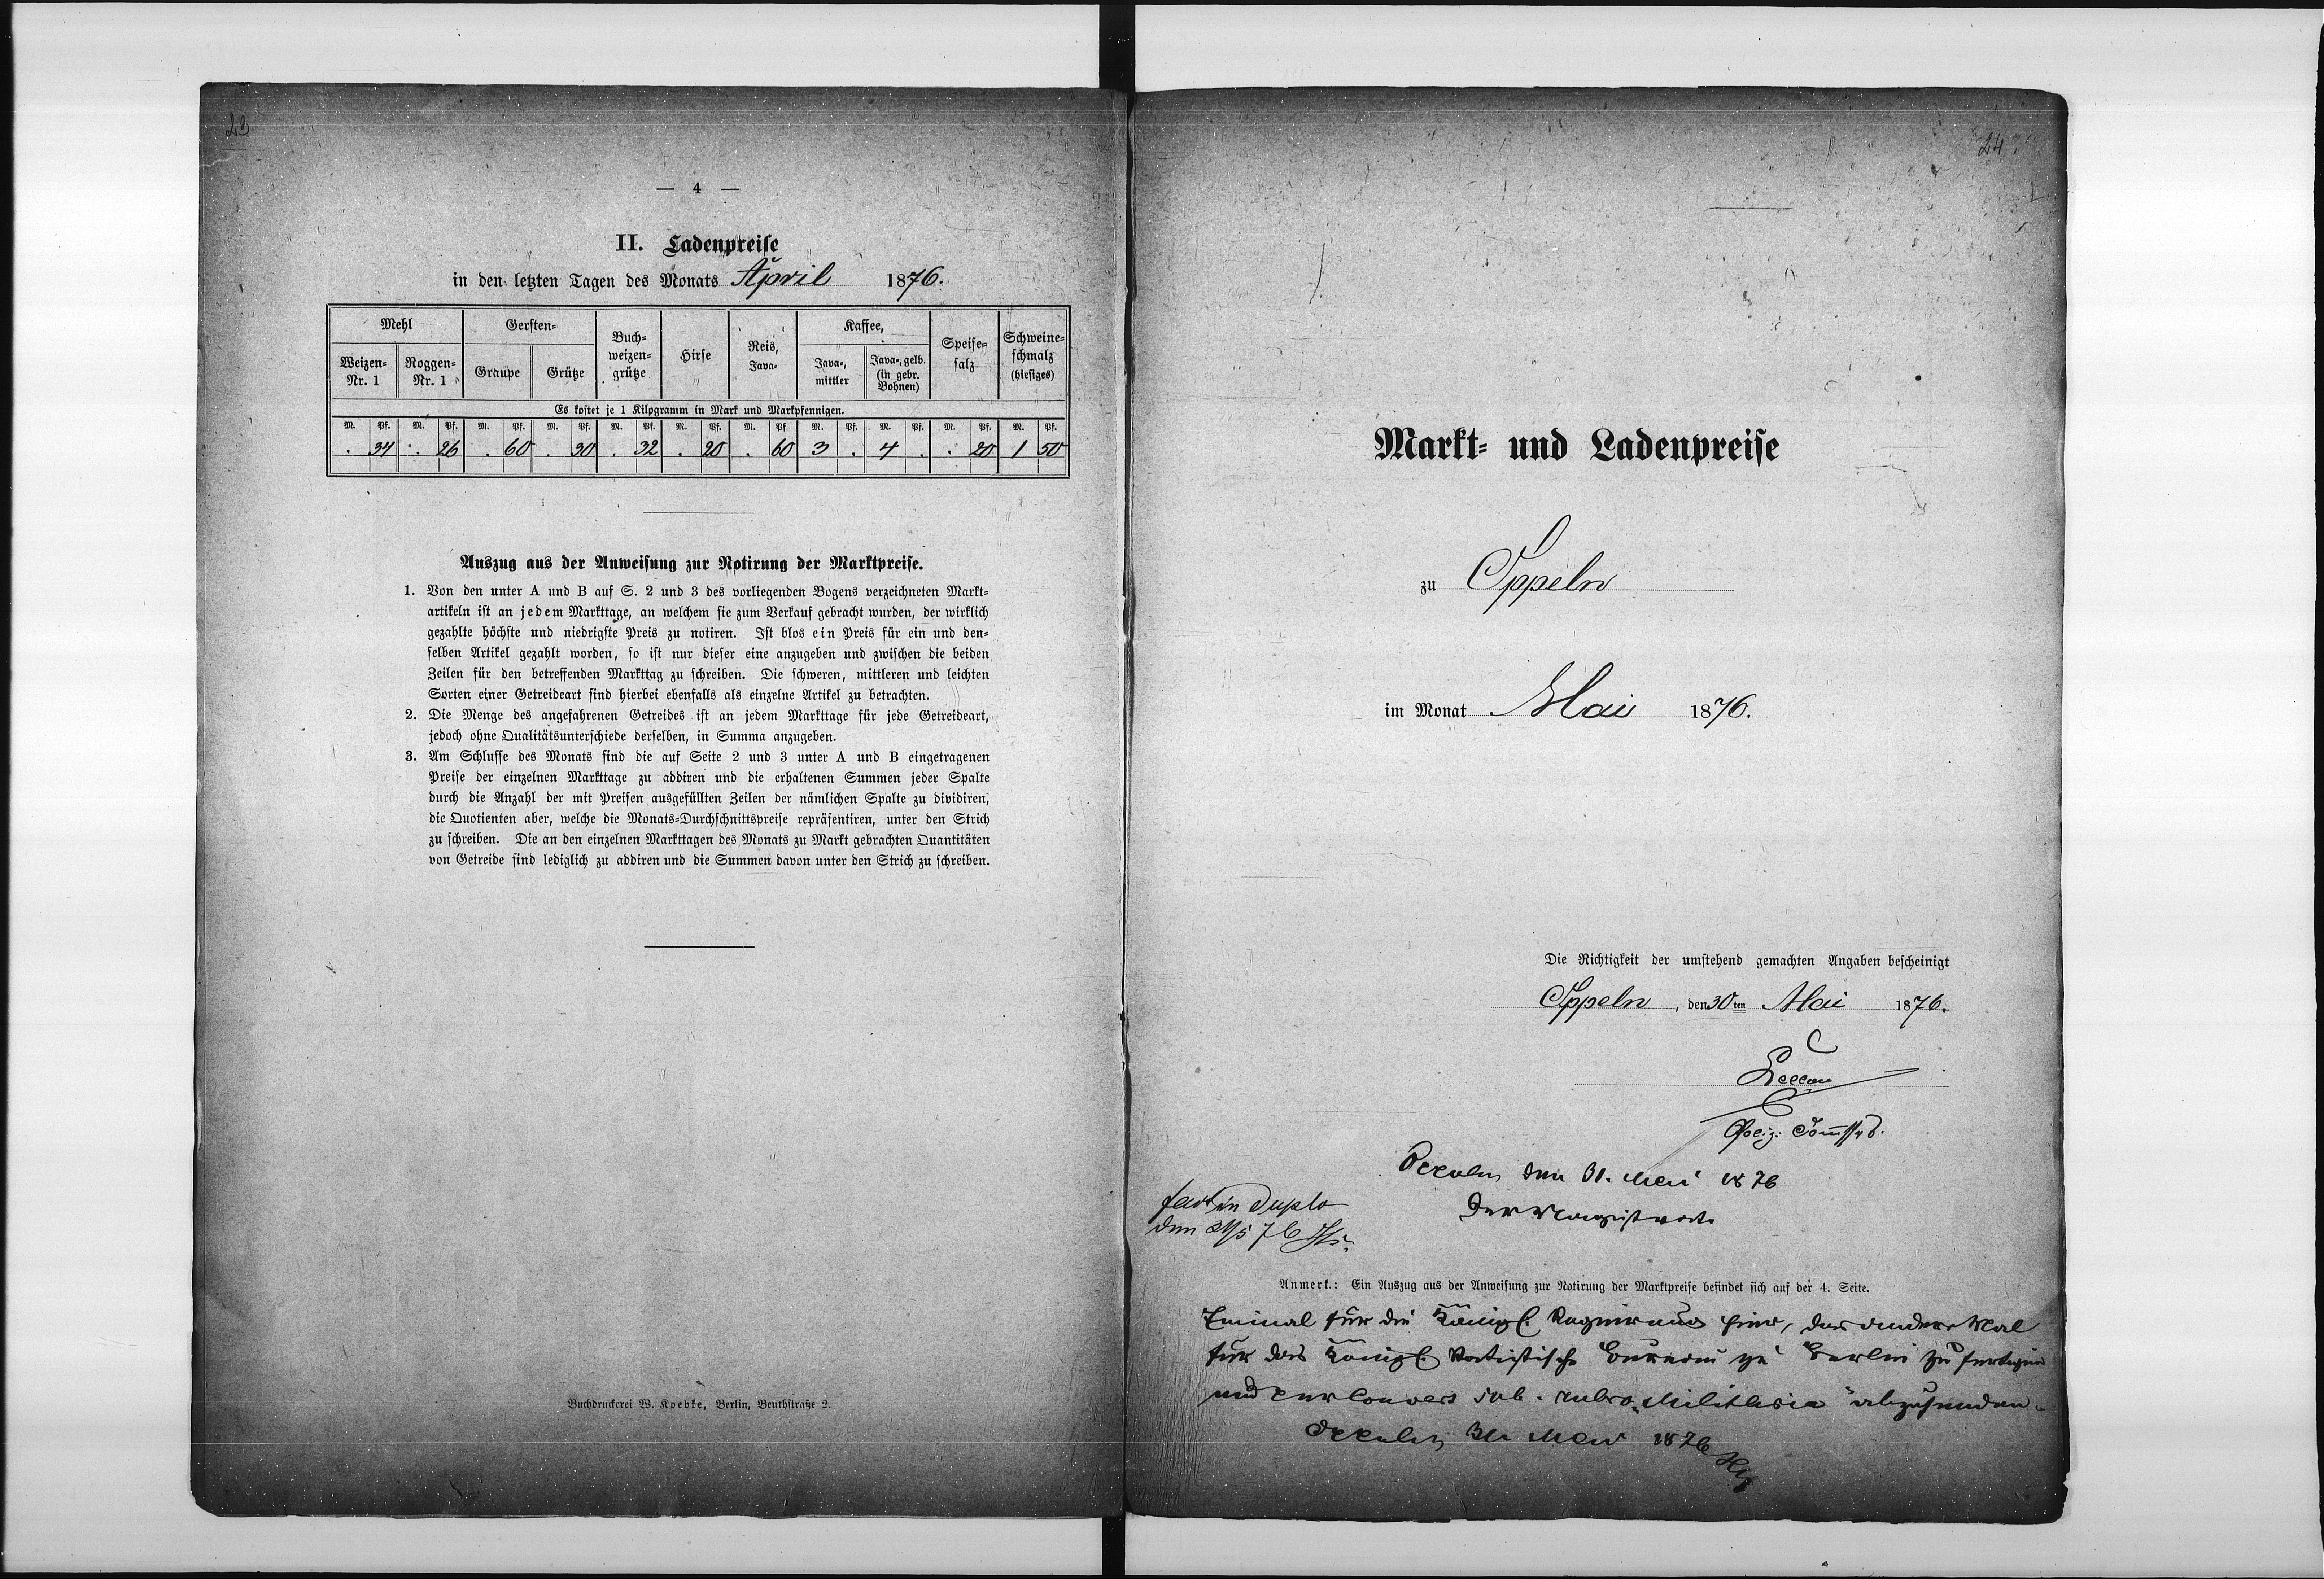 23
— 4 —
II. Ladenpreise
in den letzten Tagen des Monats April 1876.
Mehl Gersten- Buch-weizen-grütze Hirse Reis, Java- Kaffee, Speise-salz Schweine-schmalz (hiesiges)
Weizen-Nr. 1 Roggen-Nr. 1 Graupe Grütze Java-, mittler Java-, gelb. (in gebr. Bohnen)
Es kostet je 1 Kilogramm in Mark und Markpfennigen.
M. Pf. M. Pf. M. Pf. M. Pf. M. Pf. M. Pf. M. Pf. M. Pf. M. Pf. M. Pf. M. Pf.
. 34 . 26 . 60 . 30 . 32 . 20 . 60 3 . 4 . . 20 1 50
Auszug aus der Anweisung zur Notirung der Marktpreise.
1. Von den unter A und B auf S. 2 und 3 des vorliegenden Bogens verzeichneten Markt-
artikeln ist an jedem Markttage, an welchem sie zum Verkauf gebracht wurden, der wirklich
gezahlte höchste und niedrigste Preis zu notiren. Ist blos ein Preis für ein und den-
selben Artikel gezahlt worden, so ist nur dieser eine anzugeben und zwischen die beiden
Zeilen für den betreffenden Markttag zu schreiben. Die schweren, mittleren und leichten
Sorten einer Getreideart sind hierbei ebenfalls als einzelne Artikel zu betrachten.
2. Die Menge des angefahrenen Getreides ist an jedem Markttage für jede Getreideart,
jedoch ohne Qualitätsunterschiede derselben, in Summa anzugeben.
3. Am Schlusse des Monats sind die auf Seite 2 und 3 unter A und B eingetragenen
Preise der einzelnen Markttage zu addiren und die erhaltenen Summen jeder Spalte
durch die Anzahl der mit Preisen ausgefüllten Zeilen der nämlichen Spalte zu dividiren,
die Quotienten aber, welche die Monats-Durchschnittspreise repräsentiren, unter den Strich
zu schreiben. Die an den einzelnen Markttagen des Monats zu Markt gebrachten Quantitäten
von Getreide sind lediglich zu addiren und die Summen davon unter den Strich zu schreiben.
Buchdruckerei W. Koebke, Berlin, Beuthstraße 2.
24
Markt- und Ladenpreise
zu Oppeln
im Monat Mai 1876.
Die Richtigkeit der umstehend gemachten Angaben bescheinigt
Oppeln, den 30ten Mai 1876.
Poliz.
Oppeln den 31. Mai 1876
Der Magistrat
fact in Duplo
den 31/5 76
Anmerk.: Ein Auszug aus der Anweisung zur Notirung der Marktpreise befindet sich auf der 4. Seite.
Einmal für die Königl. Regierung hier, das andere Mal
für das Königl. Statistische Bureau zu Berlin zu fertigen
und per Couvert sub. rubro „Militaria" abzusenden.
Oppeln 31 Mai 1876